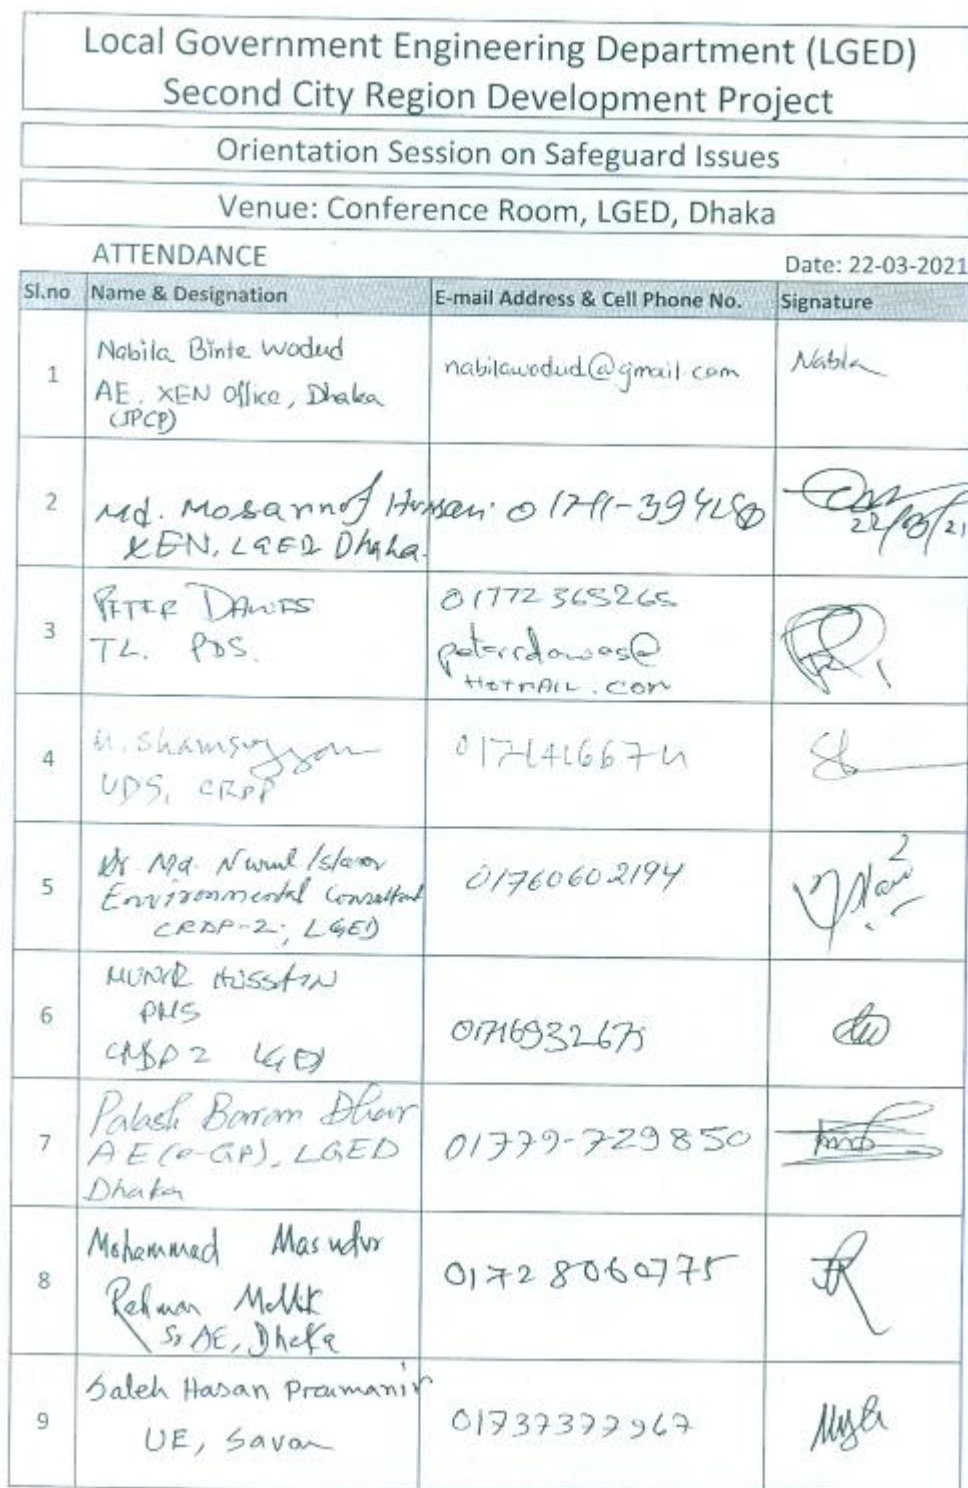 Local Government Engineering Department (LGED)
Second City Region Development Project
Orientation Session on Safeguard Issues
Venue: Conference Room, LGED, Dhaka
ATTENDANCE
Date: 22-03-2021
Sl.no Name & Designation E-mail Address & Cell Phone No. Signature
1
Nabila Binte Wodud
AE, XEN Office, Dhaka
(JPCP)
nabilawodud@gmail.com
Nabila
2
Md. Mosarrof Hossain
XEN, LGED Dhaka.
22/03/21
3
PETER DAWES
TL. PDS.
01772365265
peterrdawes@
HOTMAIL.COM
4
M. Shamsuzzam
UDS, CRDP
5
Dr Md. Nurul Islam
Environmental Consultant
CRDP-2; LGED
01760602194
6
MUNIR HUSSAIN
PMS
CRDP 2 LGED
7
Palash Baran Dhar
AE (e-GP), LGED
Dhaka
01779-729850
8
Mohammad Masudur
Rahman Mollik
Sr AE, Dhaka
01728060775
9
Saleh Hasan Pramanik
UE, Savar
01737377967